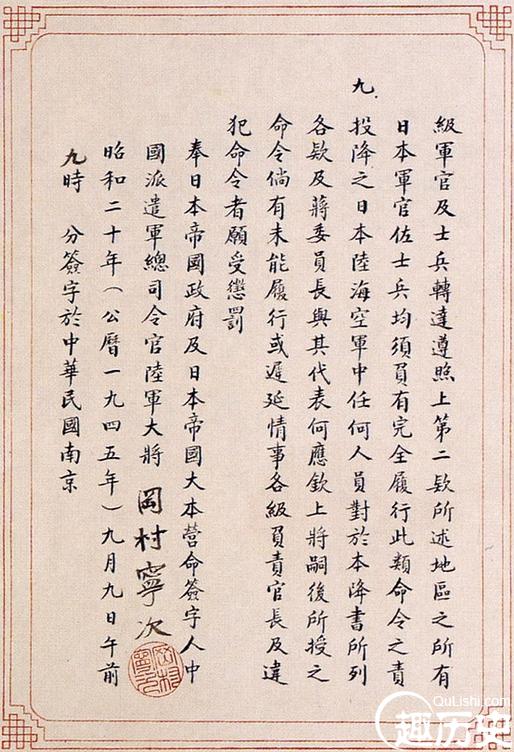 級軍官及士兵轉達遵照上第二欵所述地區之所有
日本軍官佐士兵均須負有完全履行此類命令之責
九.
投降之日本陸海空軍中任何人員對於本降書所列
各欵及蔣委員長與其代表何應欽上將嗣後所授之
命令倘有未能履行或遲延情事各級負責官長及違
犯命令者願受懲罰
奉日本帝國政府及日本帝國大本營命簽字人中
國派遣軍總司令官陸軍大將 岡村寧次
昭和二十年(公曆一九四五年)九月九日午前
九時 分簽字於中華民國南京
岡村寧次
QuLishi.com
趣历史